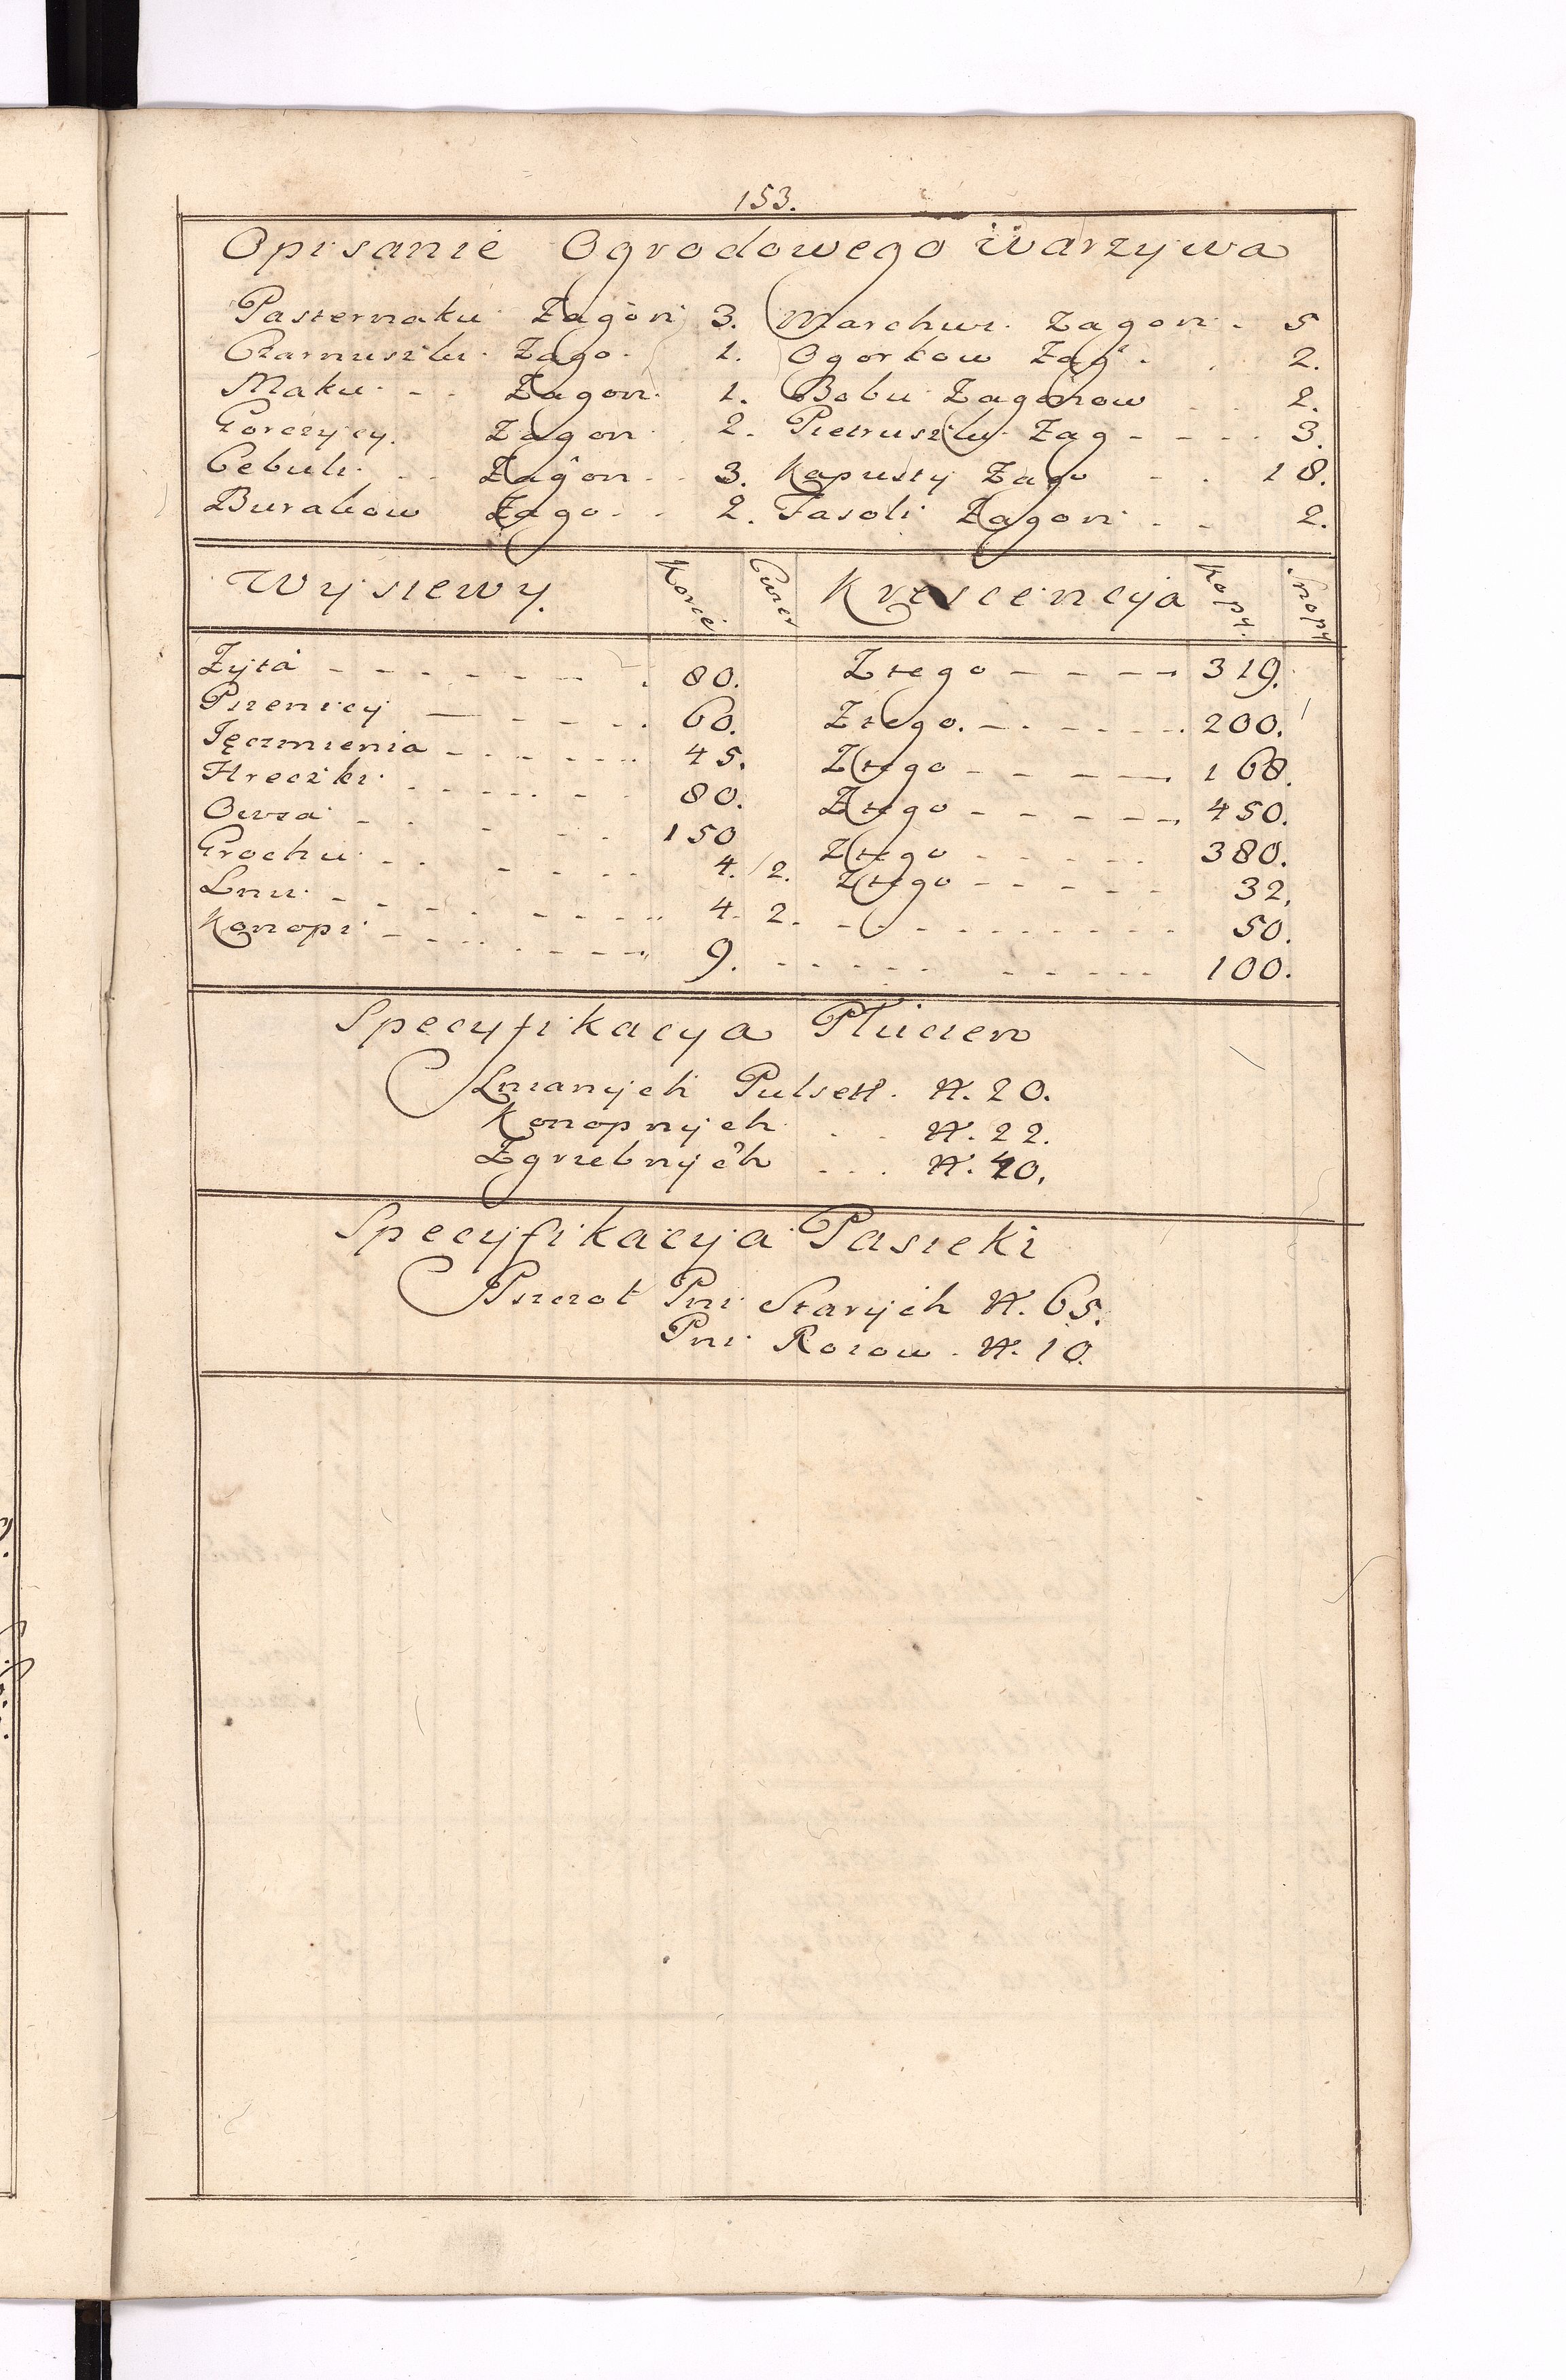 153.
Opisanie Ogrodowego Warzywa
Pasternaku Zagon 3. Marchwi Zagon 5
Czarnuszki Zago. 1. Ogorkow Zag. 2.
Maku Zagon 1. Bobu Zagonow 2.
Gorczycy. Zagon 2. Pietruszki Zag 3.
Cebuli Zagon 3. Kapusty Zago 18.
Burakow Zago 2. Fasoli Zagon 2.
Wysiewy. Korcé Krescencija Kopy. Snopy
Zyta 80. Ztego 319.
Pszenicy 60. Ztego. 200.
Jęczmienia 45. Ztego 168.
Hreczki 80. Ztego 450.
Owsa 150 Ztego 380.
Grochu 4. 2. Ztego 32.
Lnu 4. 2. 50.
Konopi 9. 100.
Specyfikacya Płucien
Lnianych Pulset. N. 20.
Konopnych N. 22.
Zgrzebnych N. 40.
Specyfikacyja Pasieki
Pszczoł Pni Starych N. 65.
Pni Roiow. N. 10.